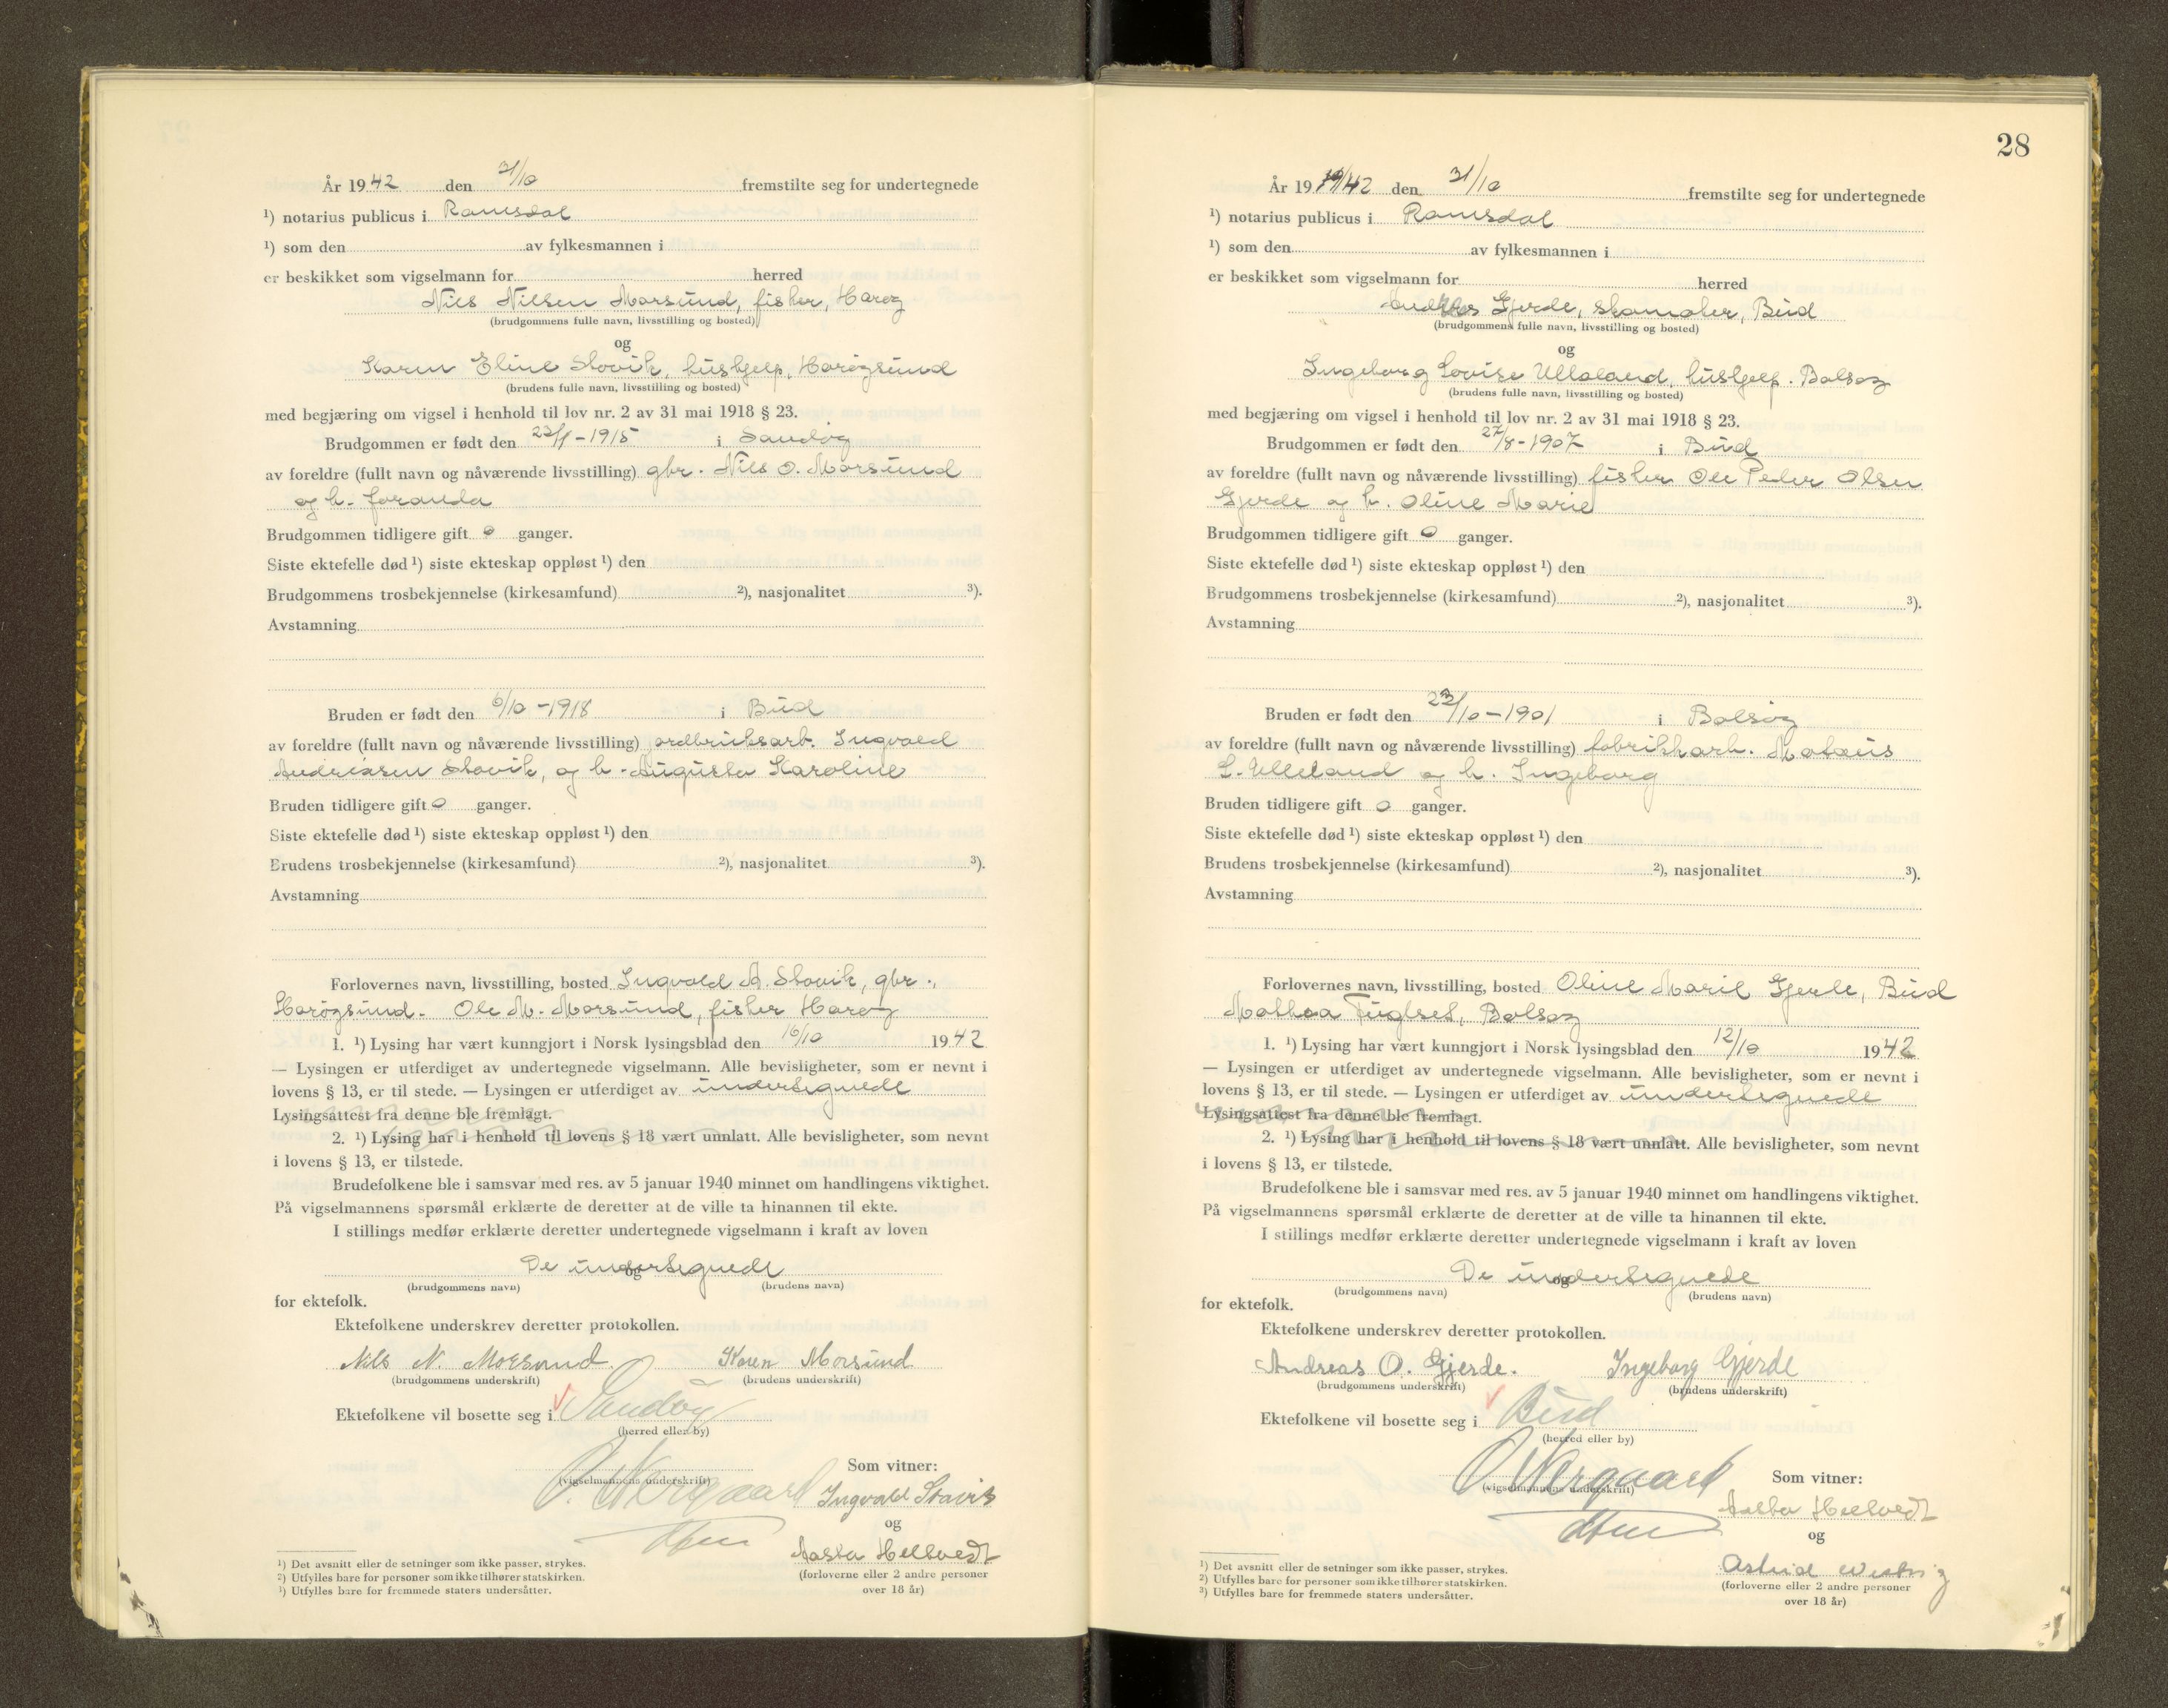 År 1942 den 31/10 fremstilte seg for undertegnede
¹) notarius publicus i Romsdal
¹) som den av fylkesmannen i
er beskikket som vigselmann for herred
Nils Nilsen Morsund, fisker, Harøy
(brudgommens fulle navn, livsstilling og bosted)
og
Karen Eline Stavik, hushjelp, Harøysund
(brudens fulle navn, livsstilling og bosted)
med begjæring om vigsel i henhold til lov nr. 2 av 31 mai 1918 § 23.
Brudgommen er født den 22/1-1915 i Sandøy
av foreldre (fullt navn og nåværende livsstilling) gbr. Nils O. Morsund
og h. Joranda
Brudgommen tidligere gift 0 ganger.
Siste ektefelle død ¹) siste ekteskap oppløst ¹) den
Brudgommens trosbekjennelse (kirkesamfund) ²), nasjonalitet ³).
Avstamning
Bruden er født den 6/10-1918 i Bud
av foreldre (fullt navn og nåværende livsstilling) jordbruksarb. Ingvald
Andreasen Stavik, og h. Augusta Karoline
Bruden tidligere gift 0 ganger.
Siste ektefelle død ¹) siste ekteskap oppløst ¹) den
Brudens trosbekjennelse (kirkesamfund) ²), nasjonalitet ³).
Avstamning
Forlovernes navn, livsstilling, bosted Ingvald A. Stavik, gbr.,
Harøysund. Ole M. Morsund, fisker Harøy
1. ¹) Lysing har vært kunngjort i Norsk lysingsblad den 16/10 1942
— Lysingen er utferdiget av undertegnede vigselmann. Alle bevisligheter, som er nevnt i
lovens § 13, er til stede. — Lysingen er utferdiget av undertegnede
Lysingsattest fra denne ble fremlagt.
2. ¹) Lysing har i henhold til lovens § 18 vært unnlatt. Alle bevisligheter, som nevnt
i lovens § 13, er tilstede.
Brudefolkene ble i samsvar med res. av 5 januar 1940 minnet om handlingens viktighet.
På vigselmannens spørsmål erklærte de deretter at de ville ta hinannen til ekte.
I stillings medfør erklærte deretter undertegnede vigselmann i kraft av loven
De undertegnede
og
(brudgommens navn) (brudens navn)
for ektefolk.
Ektefolkene underskrev deretter protokollen.
Nils N. Morsund. Karen Morsund
(brudgommens underskrift) (brudens underskrift)
Ektefolkene vil bosette seg i Sandøy
(herred eller by)
Som vitner:
(vigselmannens underskrift)
Ingvald Stavik
og
Aasta Hellvedt
(forloverne eller 2 andre personer
over 18 år)
¹) Det avsnitt eller de setninger som ikke passer, strykes.
²) Utfylles bare for personer som ikke tilhører statskirken.
³) Utfylles bare for fremmede staters undersåtter.
28
År 1942 den 31/10 fremstilte seg for undertegnede
¹) notarius publicus i Romsdal
¹) som den av fylkesmannen i
er beskikket som vigselmann for herred
Andreas Gjerde, skomaker, Bud
(brudgommens fulle navn, livsstilling og bosted)
og
Ingeborg Lovise Ulleland, hushjelp. Bolsøy
(brudens fulle navn, livsstilling og bosted)
med begjæring om vigsel i henhold til lov nr. 2 av 31 mai 1918 § 23.
Brudgommen er født den 27/8-1907 i Bud
av foreldre (fullt navn og nåværende livsstilling) fisker Ole Peder Olsen
Gjerde og h. Oline Marie
Brudgommen tidligere gift 0 ganger.
Siste ektefelle død ¹) siste ekteskap oppløst ¹) den
Brudgommens trosbekjennelse (kirkesamfund) ²), nasjonalitet ³).
Avstamning
Bruden er født den 23/10-1901 i Bolsøy
av foreldre (fullt navn og nåværende livsstilling) fabrikkarb. Mateus
L. Ulleland og h. Ingeborg
Bruden tidligere gift 0 ganger.
Siste ektefelle død ¹) siste ekteskap oppløst ¹) den
Brudens trosbekjennelse (kirkesamfund) ²), nasjonalitet ³).
Avstamning
Forlovernes navn, livsstilling, bosted Oline Marie Gjerde, Bud
Mathea Fuglset, Bolsøy
1. ¹) Lysing har vært kunngjort i Norsk lysingsblad den 12/10 1942
— Lysingen er utferdiget av undertegnede vigselmann. Alle bevisligheter, som er nevnt i
lovens § 13, er til stede. — Lysingen er utferdiget av undertegnede
Lysingsattest fra denne ble fremlagt.
2. ¹) Lysing har i henhold til lovens § 18 vært unnlatt. Alle bevisligheter, som nevnt
i lovens § 13, er tilstede.
Brudefolkene ble i samsvar med res. av 5 januar 1940 minnet om handlingens viktighet.
På vigselmannens spørsmål erklærte de deretter at de ville ta hinannen til ekte.
I stillings medfør erklærte deretter undertegnede vigselmann i kraft av loven
De undertegnede
og
(brudgommens navn) (brudens navn)
for ektefolk.
Ektefolkene underskrev deretter protokollen.
Andreas O. Gjerde. Ingeborg Gjerde
(brudgommens underskrift) (brudens underskrift)
Ektefolkene vil bosette seg i Bud
(herred eller by)
Som vitner:
(vigselmannens underskrift)
Aasta Hellvedt
og
Astrid
(forloverne eller 2 andre personer
over 18 år)
¹) Det avsnitt eller de setninger som ikke passer, strykes.
²) Utfylles bare for personer som ikke tilhører statskirken.
³) Utfylles bare for fremmede staters undersåtter.